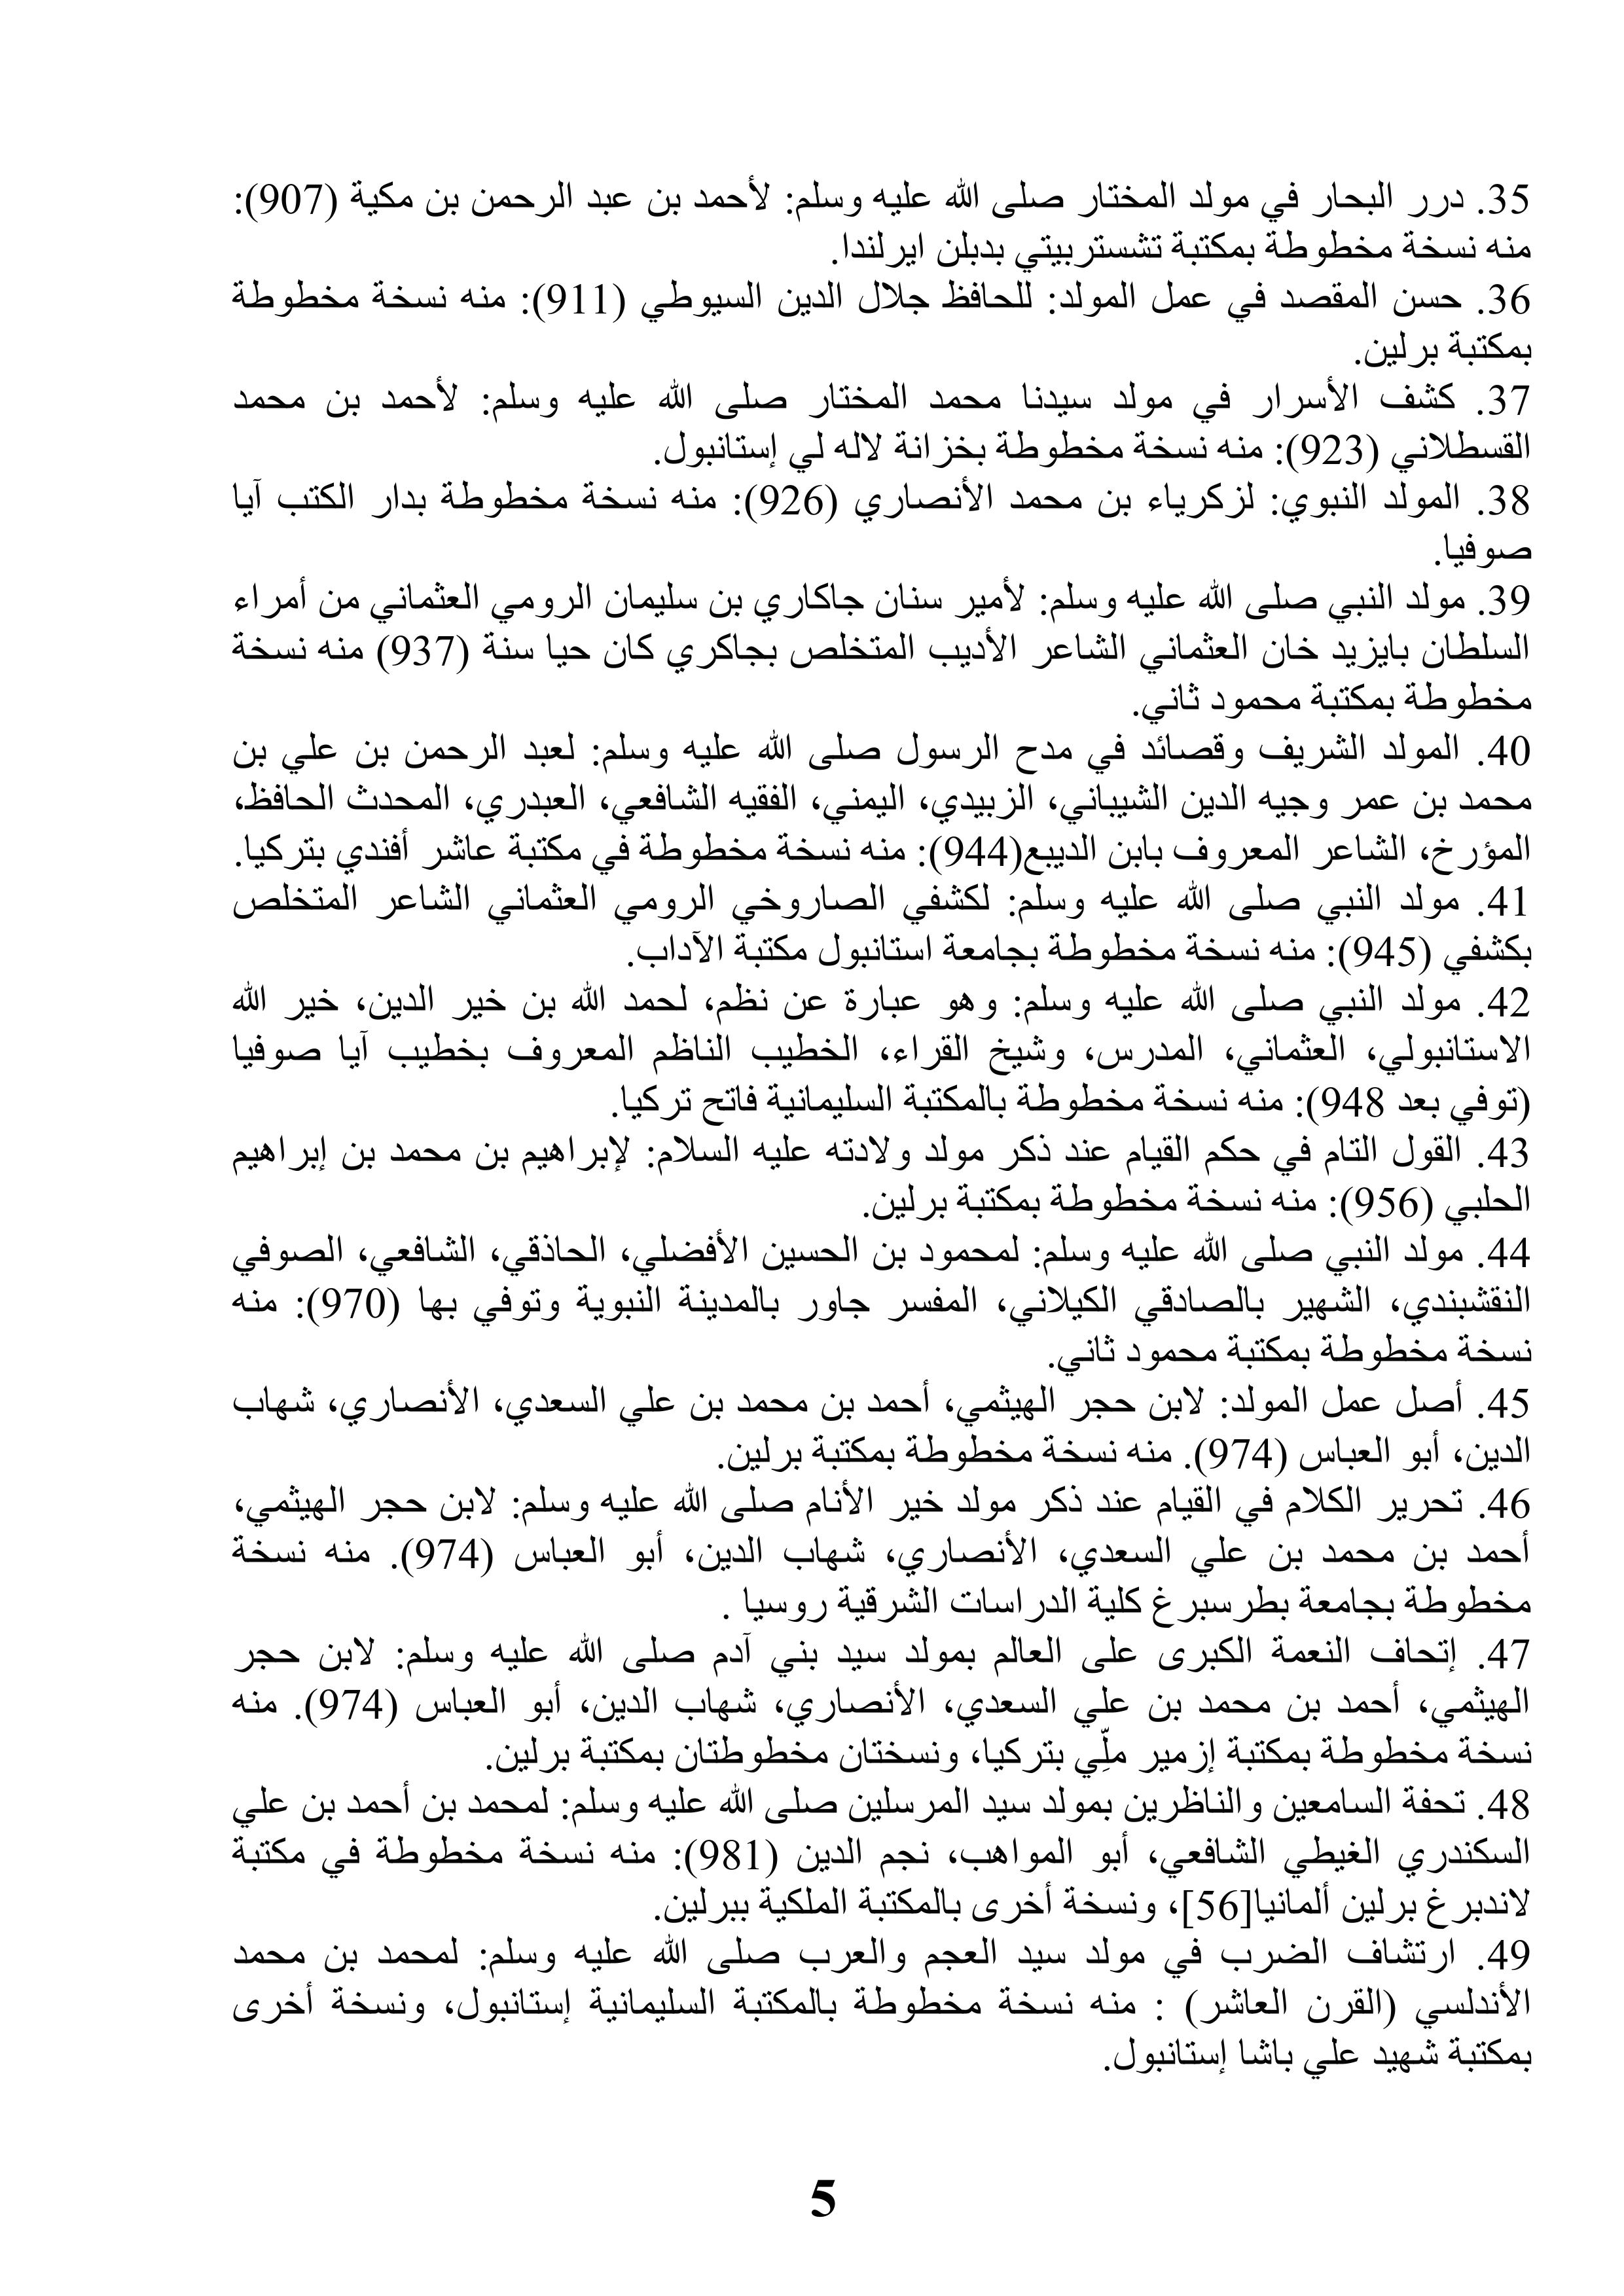 35. درر البحار في مولد المختار صلى الله عليه وسلم: لأحمد بن عبد الرحمن بن مكية (907):
منه نسخة مخطوطة بمكتبة تشستربيتي بدبلن ايرلندا.
36. حسن المقصد في عمل المولد: للحافظ جلال الدين السيوطي (911): منه نسخة مخطوطة
بمكتبة برلين.
37. كشف الأسرار في مولد سيدنا محمد المختار صلى الله عليه وسلم: لأحمد بن محمد
القسطلاني (923): منه نسخة مخطوطة بخزانة لاله لي إستانبول.
38. المولد النبوي: لزكرياء بن محمد الأنصاري (926): منه نسخة مخطوطة بدار الكتب آيا
صوفيا.
39. مولد النبي صلى الله عليه وسلم: لأمير سنان جاكاري بن سليمان الرومي العثماني من أمراء
السلطان بايزيد خان العثماني الشاعر الأديب المتخلص بجاكري كان حيا سنة (937) منه نسخة
مخطوطة بمكتبة محمود ثاني.
40. المولد الشريف وقصائد في مدح الرسول صلى الله عليه وسلم: لعبد الرحمن بن علي بن
محمد بن عمر وجيه الدين الشيباني، الزبيدي، اليمني، الفقيه الشافعي، العبدري، المحدث الحافظ،
المؤرخ، الشاعر المعروف بابن الديبع(944): منه نسخة مخطوطة في مكتبة عاشر أفندي بتركيا.
41. مولد النبي صلى الله عليه وسلم: لكشفي الصاروخي الرومي العثماني الشاعر المتخلص
بكشفي (945): منه نسخة مخطوطة بجامعة استانبول مكتبة الآداب.
42. مولد النبي صلى الله عليه وسلم: وهو عبارة عن نظم، لحمد الله بن خير الدين، خير الله
الاستانبولي، العثماني، المدرس، وشيخ القراء، الخطيب الناظم المعروف بخطيب آيا صوفيا
(توفي بعد 948): منه نسخة مخطوطة بالمكتبة السليمانية فاتح تركيا.
43. القول التام في حكم القيام عند ذكر مولد ولادته عليه السلام: لإبراهيم بن محمد بن إبراهيم
الحلبي (956): منه نسخة مخطوطة بمكتبة برلين.
44. مولد النبي صلى الله عليه وسلم: لمحمود بن الحسين الأفضلي، الحاذقي، الشافعي، الصوفي
النقشبندي، الشهير بالصادقي الكيلاني، المفسر جاور بالمدينة النبوية وتوفي بها (970): منه
نسخة مخطوطة بمكتبة محمود ثاني.
45. أصل عمل المولد: لابن حجر الهيثمي، أحمد بن محمد بن علي السعدي، الأنصاري، شهاب
الدين، أبو العباس (974). منه نسخة مخطوطة بمكتبة برلين.
46. تحرير الكلام في القيام عند ذكر مولد خير الأنام صلى الله عليه وسلم: لابن حجر الهيثمي،
أحمد بن محمد بن علي السعدي، الأنصاري، شهاب الدين، أبو العباس (974). منه نسخة
مخطوطة بجامعة بطرسبرغ كلية الدراسات الشرقية روسيا .
47. إتحاف النعمة الكبرى على العالم بمولد سيد بني آدم صلى الله عليه وسلم: لابن حجر
الهيثمي، أحمد بن محمد بن علي السعدي، الأنصاري، شهاب الدين، أبو العباس (974). منه
نسخة مخطوطة بمكتبة إزمير ملِّي بتركيا، ونسختان مخطوطتان بمكتبة برلين.
48. تحفة السامعين والناظرين بمولد سيد المرسلين صلى الله عليه وسلم: لمحمد بن أحمد بن علي
السكندري الغيطي الشافعي، أبو المواهب، نجم الدين (981): منه نسخة مخطوطة في مكتبة
لاندبرغ برلين ألمانيا[56]، ونسخة أخرى بالمكتبة الملكية ببرلين.
49. ارتشاف الضرب في مولد سيد العجم والعرب صلى الله عليه وسلم: لمحمد بن محمد
الأندلسي (القرن العاشر) : منه نسخة مخطوطة بالمكتبة السليمانية إستانبول، ونسخة أخرى
بمكتبة شهيد علي باشا إستانبول.
5